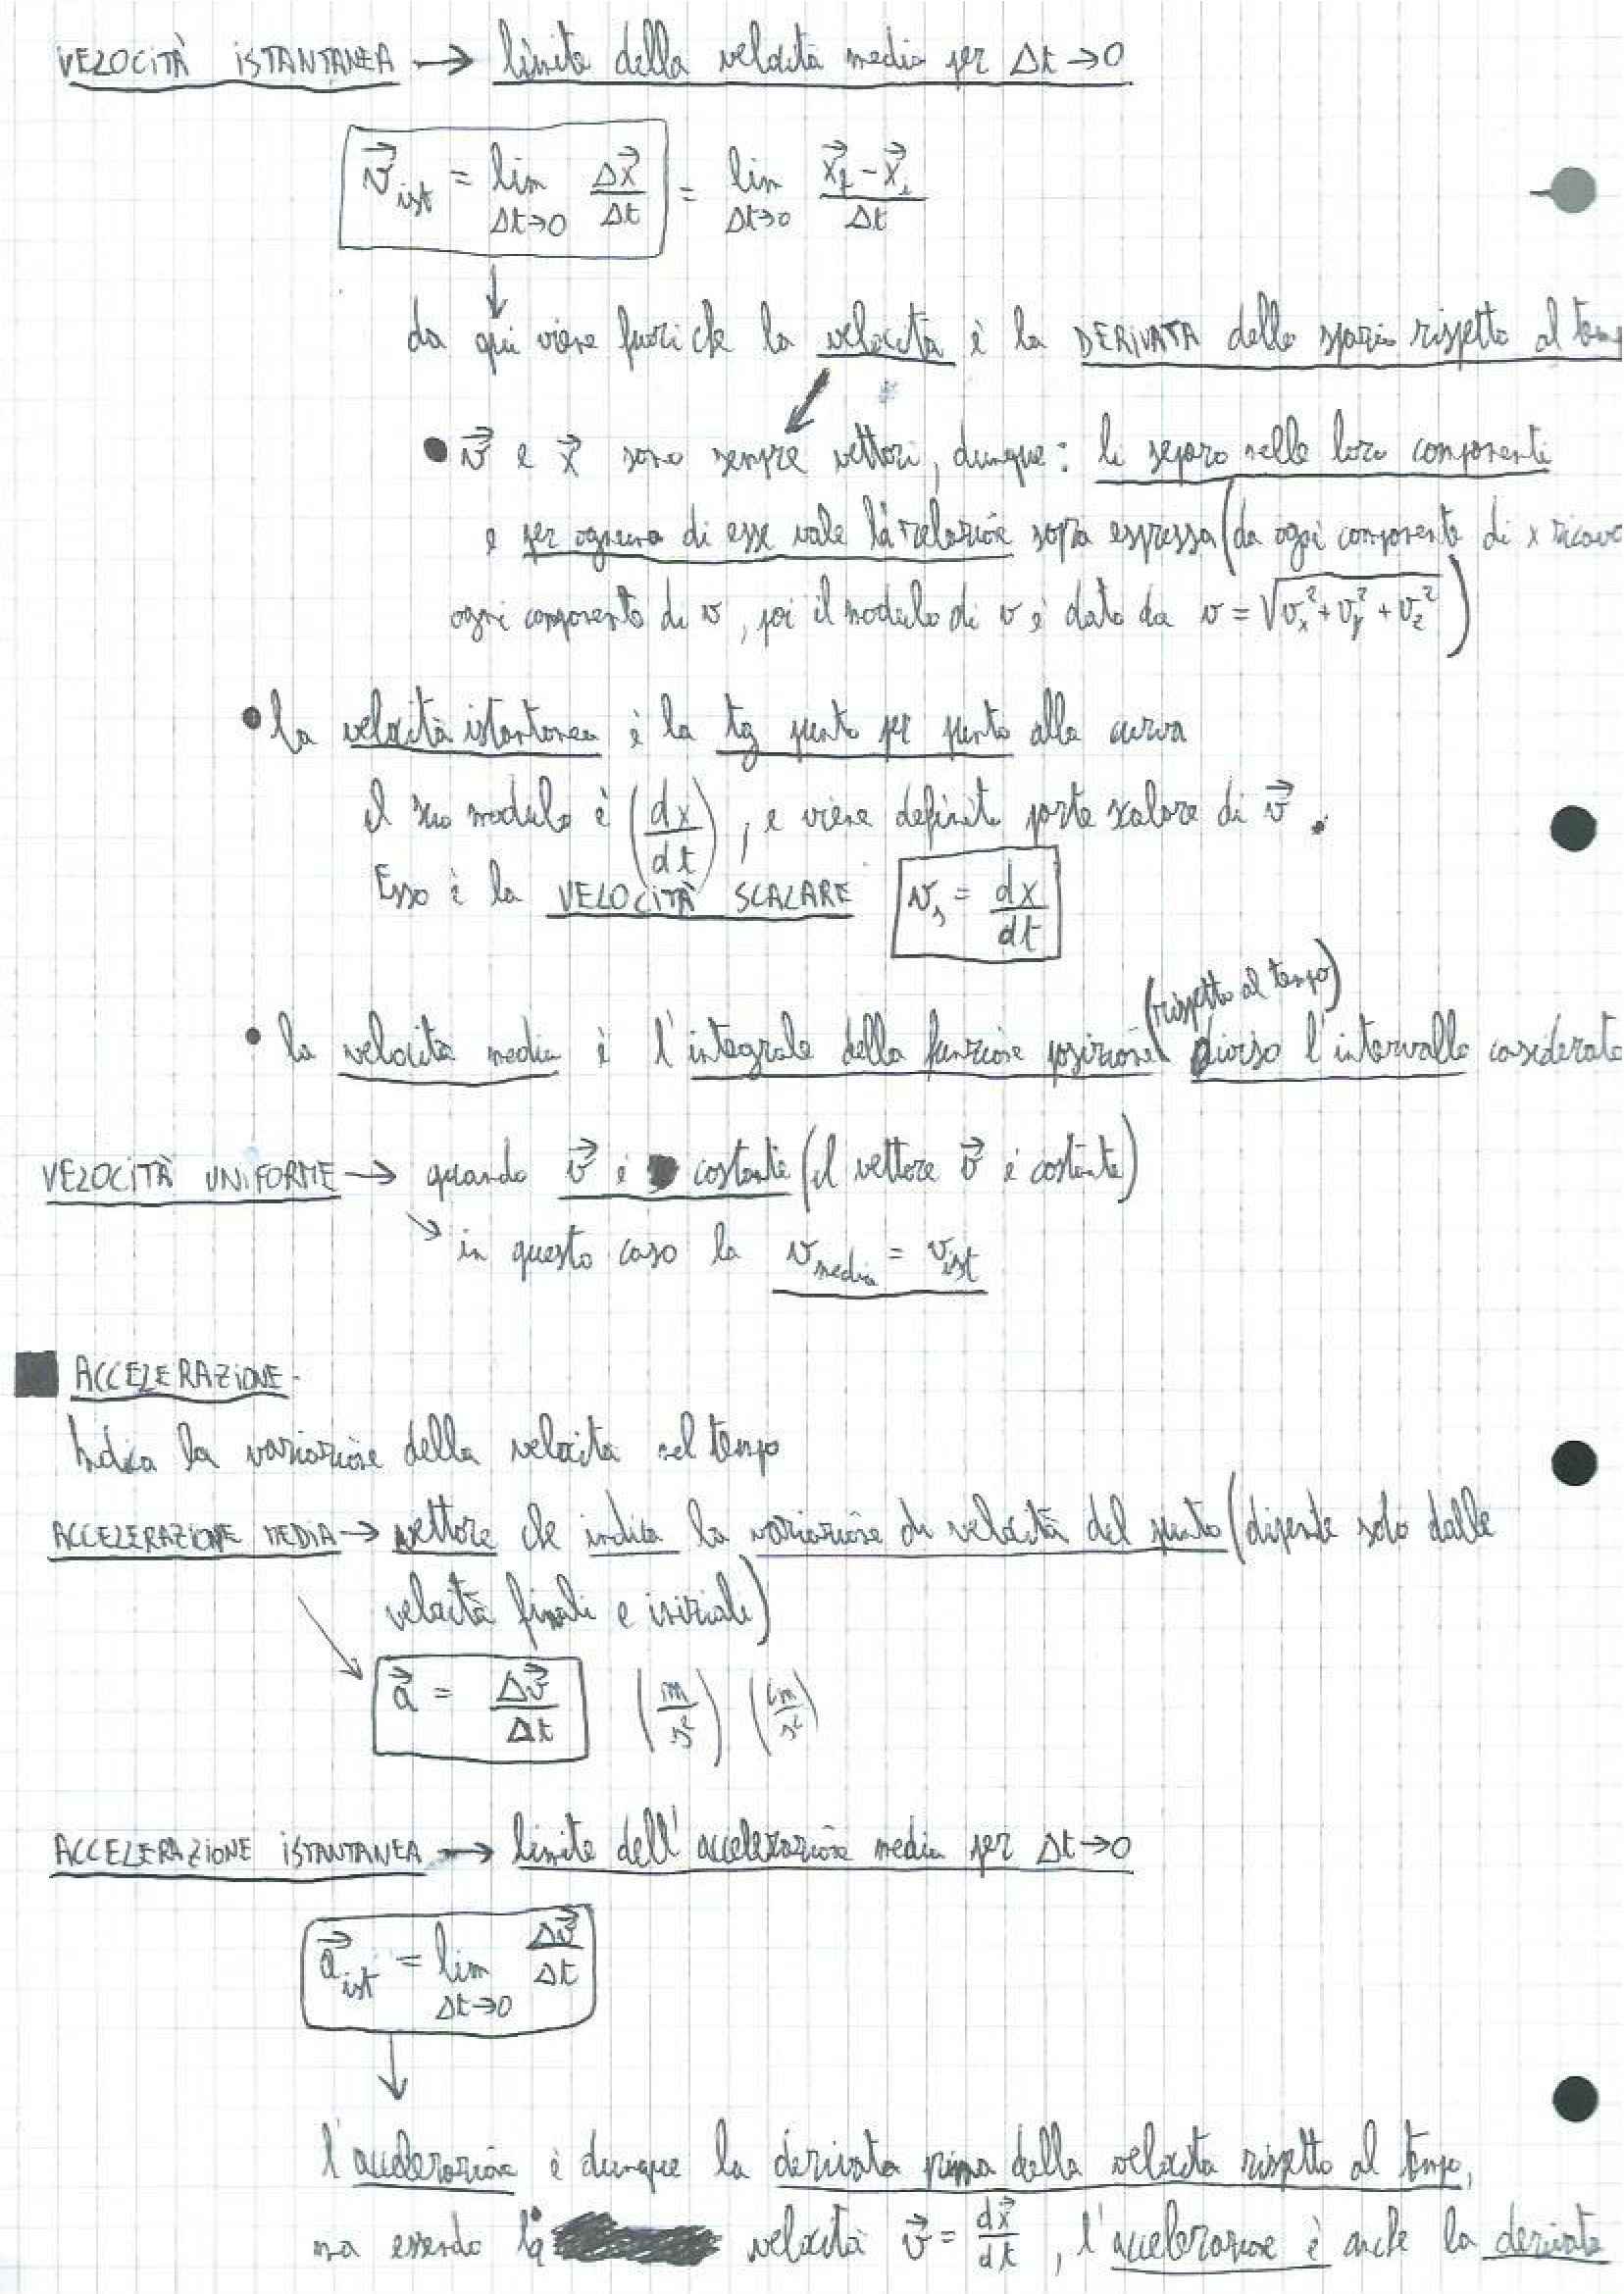 VELOCITÀ ISTANTANEA → limite della velocità media per Δt→0
v⃗ist = lim Δt→0 Δx⃗/Δt = lim Δt→0 (x⃗f − x⃗i)/Δt
da qui viene fuori che la velocità è la DERIVATA dello spazio rispetto al temp
• v⃗ e x⃗ sono sempre vettori, dunque: li separo nelle loro componenti
e per ognuna di esse vale la relazione sopra espressa (da ogni componente di x ricavo
ogni componente di v, poi il modulo di v è dato da v = √(vx² + vy² + vz²))
• la velocità istantanea è la tg punto per punto alla curva
il suo modulo è (dx/dt), e viene definito parte scalare di v⃗.
Esso è la VELOCITÀ SCALARE vs = dx/dt
(rispetto al tempo)
• la velocità media è l'integrale della funzione posizione diviso l'intervallo considerato
VELOCITÀ UNIFORME → quando v⃗ è costante (il vettore v⃗ è costante)
↘ in questo caso la vmedia = vist
■ ACCELERAZIONE
Indica la variazione della velocità nel tempo
ACCELERAZIONE MEDIA → vettore che indica la variazione di velocità del punto (dipende solo dalle
velocità finali e iniziale)
a⃗ = Δv⃗/Δt (m/s²) (cm/s²)
ACCELERAZIONE ISTANTANEA → limite dell'accelerazione media per Δt→0
a⃗ist = lim Δt→0 Δv⃗/Δt
l'accelerazione è dunque la derivata prima della velocità rispetto al tempo,
ma essendo la velocità v⃗ = dx⃗/dt, l'accelerazione è anche la derivata